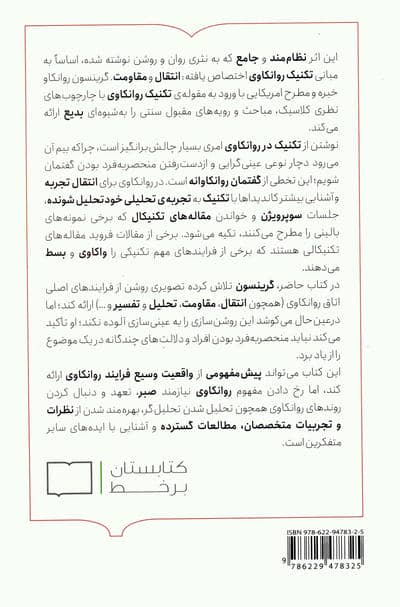 این اثر نظام‌مند و جامع که به نثری روان و روشن نوشته شده، اساساً به
مبانی تکنیک روانکاوی اختصاص یافته: انتقال و مقاومت. گرینسون روانکاو
خبره و مطرح امریکایی با ورود به مقوله‌ی تکنیک روانکاوی با چارچوب‌های
نظری کلاسیک، مباحث و رویه‌های مقبول سنتی را به‌شیوه‌ای بدیع ارائه
می‌کند.
نوشتن از تکنیک در روانکاوی امری بسیار چالش‌برانگیز است، چراکه بیم آن
می‌رود دچار نوعی عینی‌گرایی و ازدست‌رفتن منحصربه‌فرد بودن گفتمان
شویم؛ این تخطی از گفتمان روانکاوانه است. در روانکاوی برای انتقال تجربه
و آشنایی بیشتر کاندیداها با تکنیک به تجربه‌ی تحلیلی خود تحلیل شونده،
جلسات سوپرویژن و خواندن مقاله‌های تکنیکال که برخی نمونه‌های
بالینی را مطرح می‌کنند، تکیه می‌شود. برخی از مقالات فروید مقاله‌های
تکنیکالی هستند که برخی از فرایندهای مهم تکنیکی را واکاوی و بسط
می‌دهند.
در کتاب حاضر، گرینسون تلاش کرده تصویری روشن از فرایندهای اصلی
اتاق روانکاوی (همچون انتقال، مقاومت، تحلیل و تفسیر و ...) ارائه کند؛ اما
درعین‌حال می‌کوشد این روشن‌سازی را به عینی‌سازی آلوده نکند؛ او تأکید
می‌کند نباید منحصربه‌فرد بودن افراد و دلالت‌های چندگانه در یک موضوع
را از یاد برد.
این کتاب می‌تواند پیش‌مفهومی از واقعیت وسیع فرایند روانکاوی ارائه
کند، اما رخ دادن مفهوم روانکاوی نیازمند صبر، تعهد و دنبال کردن
روندهای روانکاوی همچون تحلیل شدن تحلیل‌گر، بهره‌مند شدن از نظرات
و تجربیات متخصصان، مطالعات گسترده و آشنایی با ایده‌های سایر
متفکرین است.
کتابستان
برخط
ISBN 978-622-94783-2-5
9 786229 478325